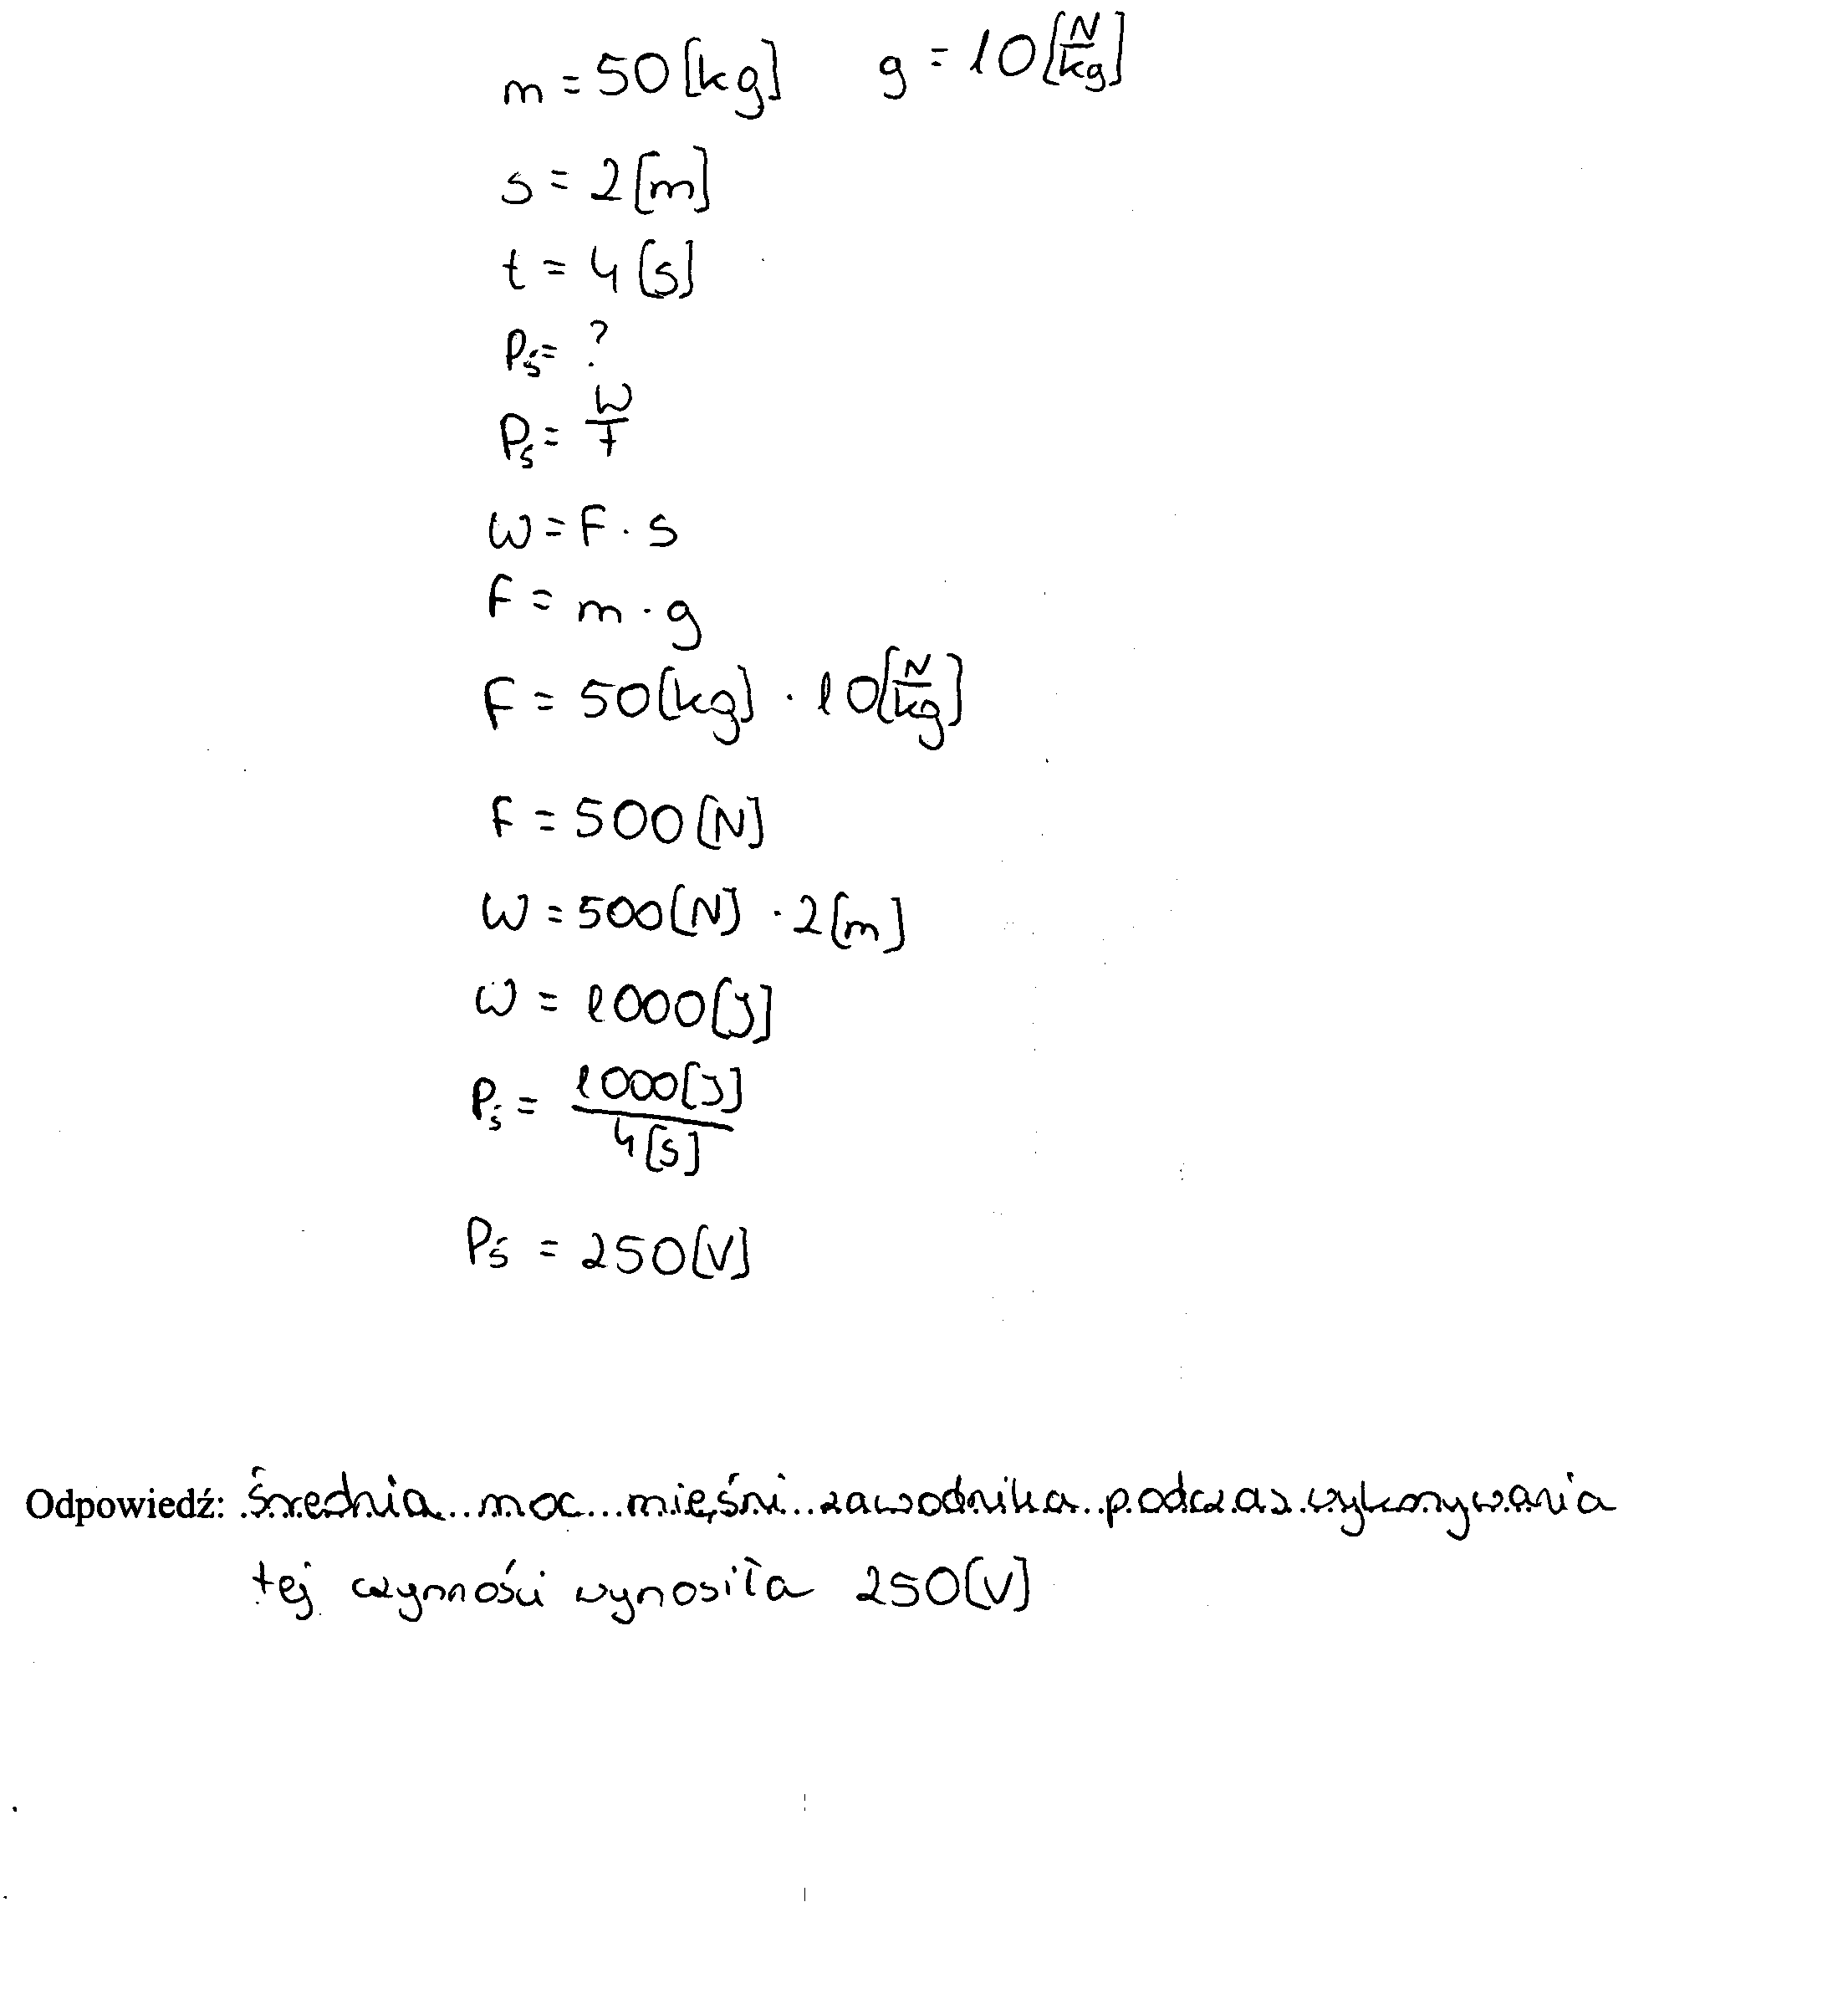 m = 50 [kg] g = 10 [N/kg]
s = 2 [m]
t = 4 [s]
Pś = ?
Pś = W/t
W = F · s
F = m · g
F = 50 [kg] · 10 [N/kg]
F = 500 [N]
W = 500 [N] · 2 [m]
W = 1000 [J]
Pś = 1000 [J] / 4 [s]
Pś = 250 [V]
Odpowiedź: średnia moc mięśni zawodnika podczas wykonywania
tej czynności wynosiła 250 [V]